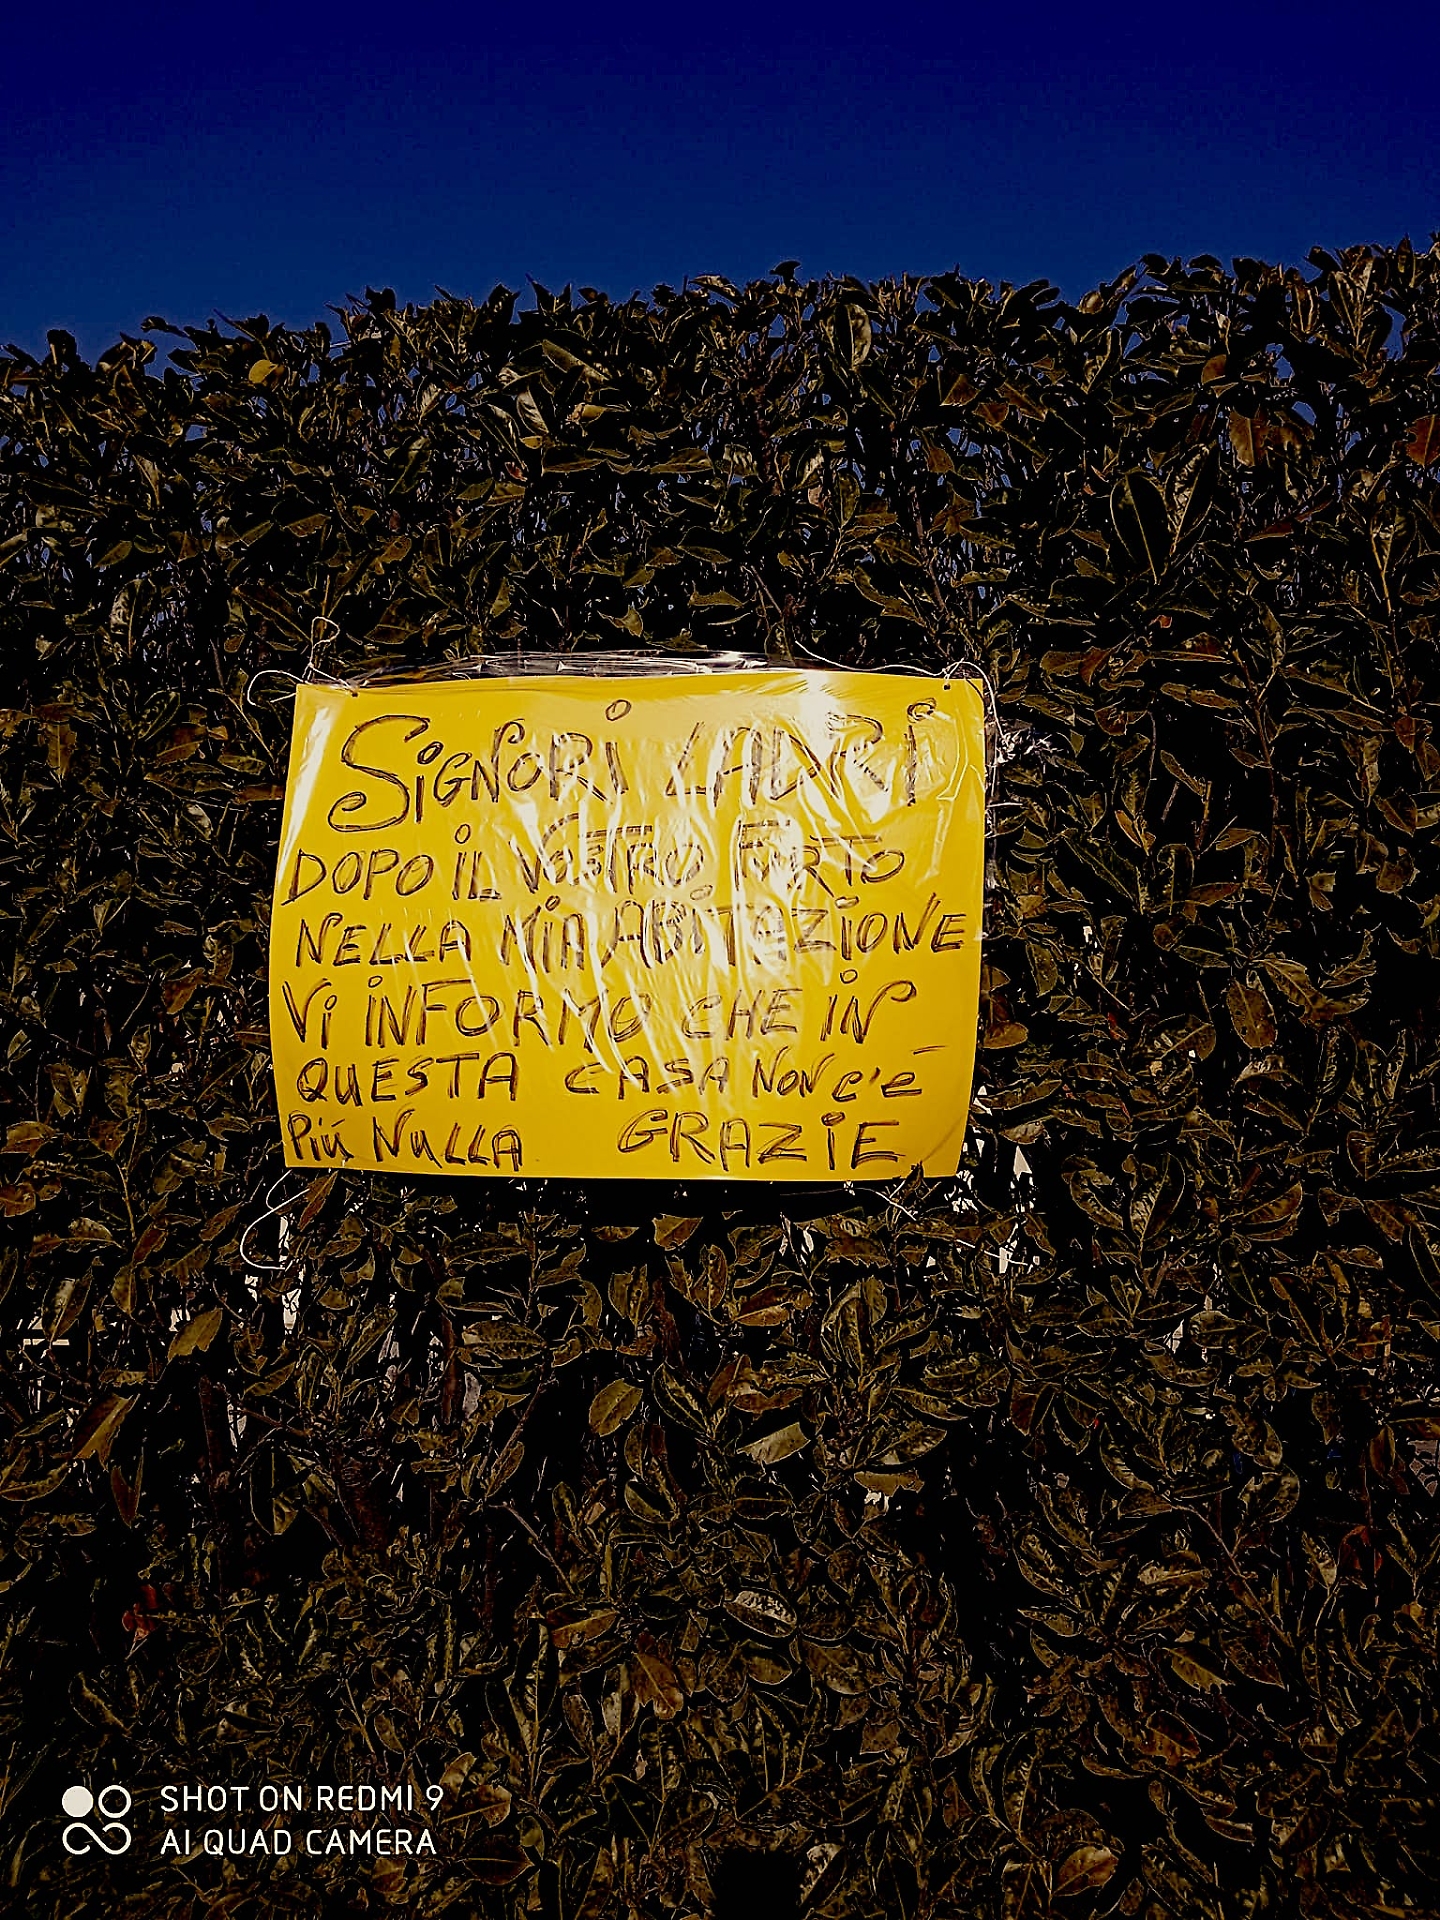 SiGNORi LADRi
DOPO iL VOSTRO FURTO
NELLA MiA ABiTAZiONE
Vi iNFORMO CHE iN
QUESTA CASA NON C'È
Più NULLA GRAZiE
SHOT ON REDMI 9
AI QUAD CAMERA